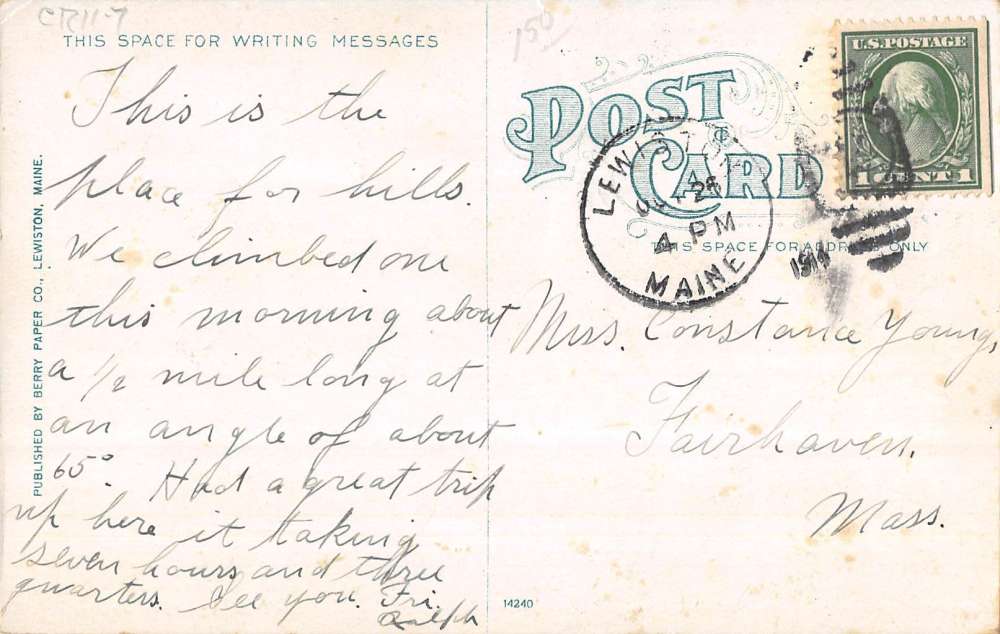 CR11-7
150
THIS SPACE FOR WRITING MESSAGES
This is the
place for hills.
We climbed one
this morning about
a 1/2 mile long at
an angle of about
65°. Had a great trip
up here it taking
seven hours and three
quarters. See you. Fri.
Ralph
PUBLISHED BY BERRY PAPER CO., LEWISTON, MAINE.
POST CARD
THIS SPACE FOR ADDRESS ONLY
U.S. POSTAGE
1 CENT 1
LEWISTON
4 PM
MAINE
Miss. Constance Young,
Fairhaven.
Mass.
14240